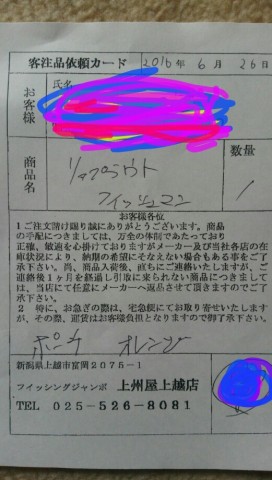 客注品依頼カード 2016年 6月 26日
お客様
氏名
商品名
リップラウト
フィッシュマン
数量
1
お客様各位
1 ご注文請け賜り誠にありがとうございます。商品
の手配につきましては、万全の体制であたっており
正確、敏速を心掛けておりますがメーカー及び当社各店の在
庫状況により、納期の希望にそえない場合もある事をご了
承下さい。尚、商品入荷後、直ちにご連絡いたしますが、ご
連絡後1ヶ月を経過し引取に来られない商品につきまして
は、当店にて任意にメーカーへ返品させて頂きますのでご了
承下さい。
2 特に、お急ぎの際は、宅急便にてお取り寄せいたします
が、その際、運賃はお客様負担となりますので御了承下さい。
ポーチ オレンジ
新潟県上越市富岡2075-1
フィッシングジャンボ 上州屋上越店
TEL 025-526-8081